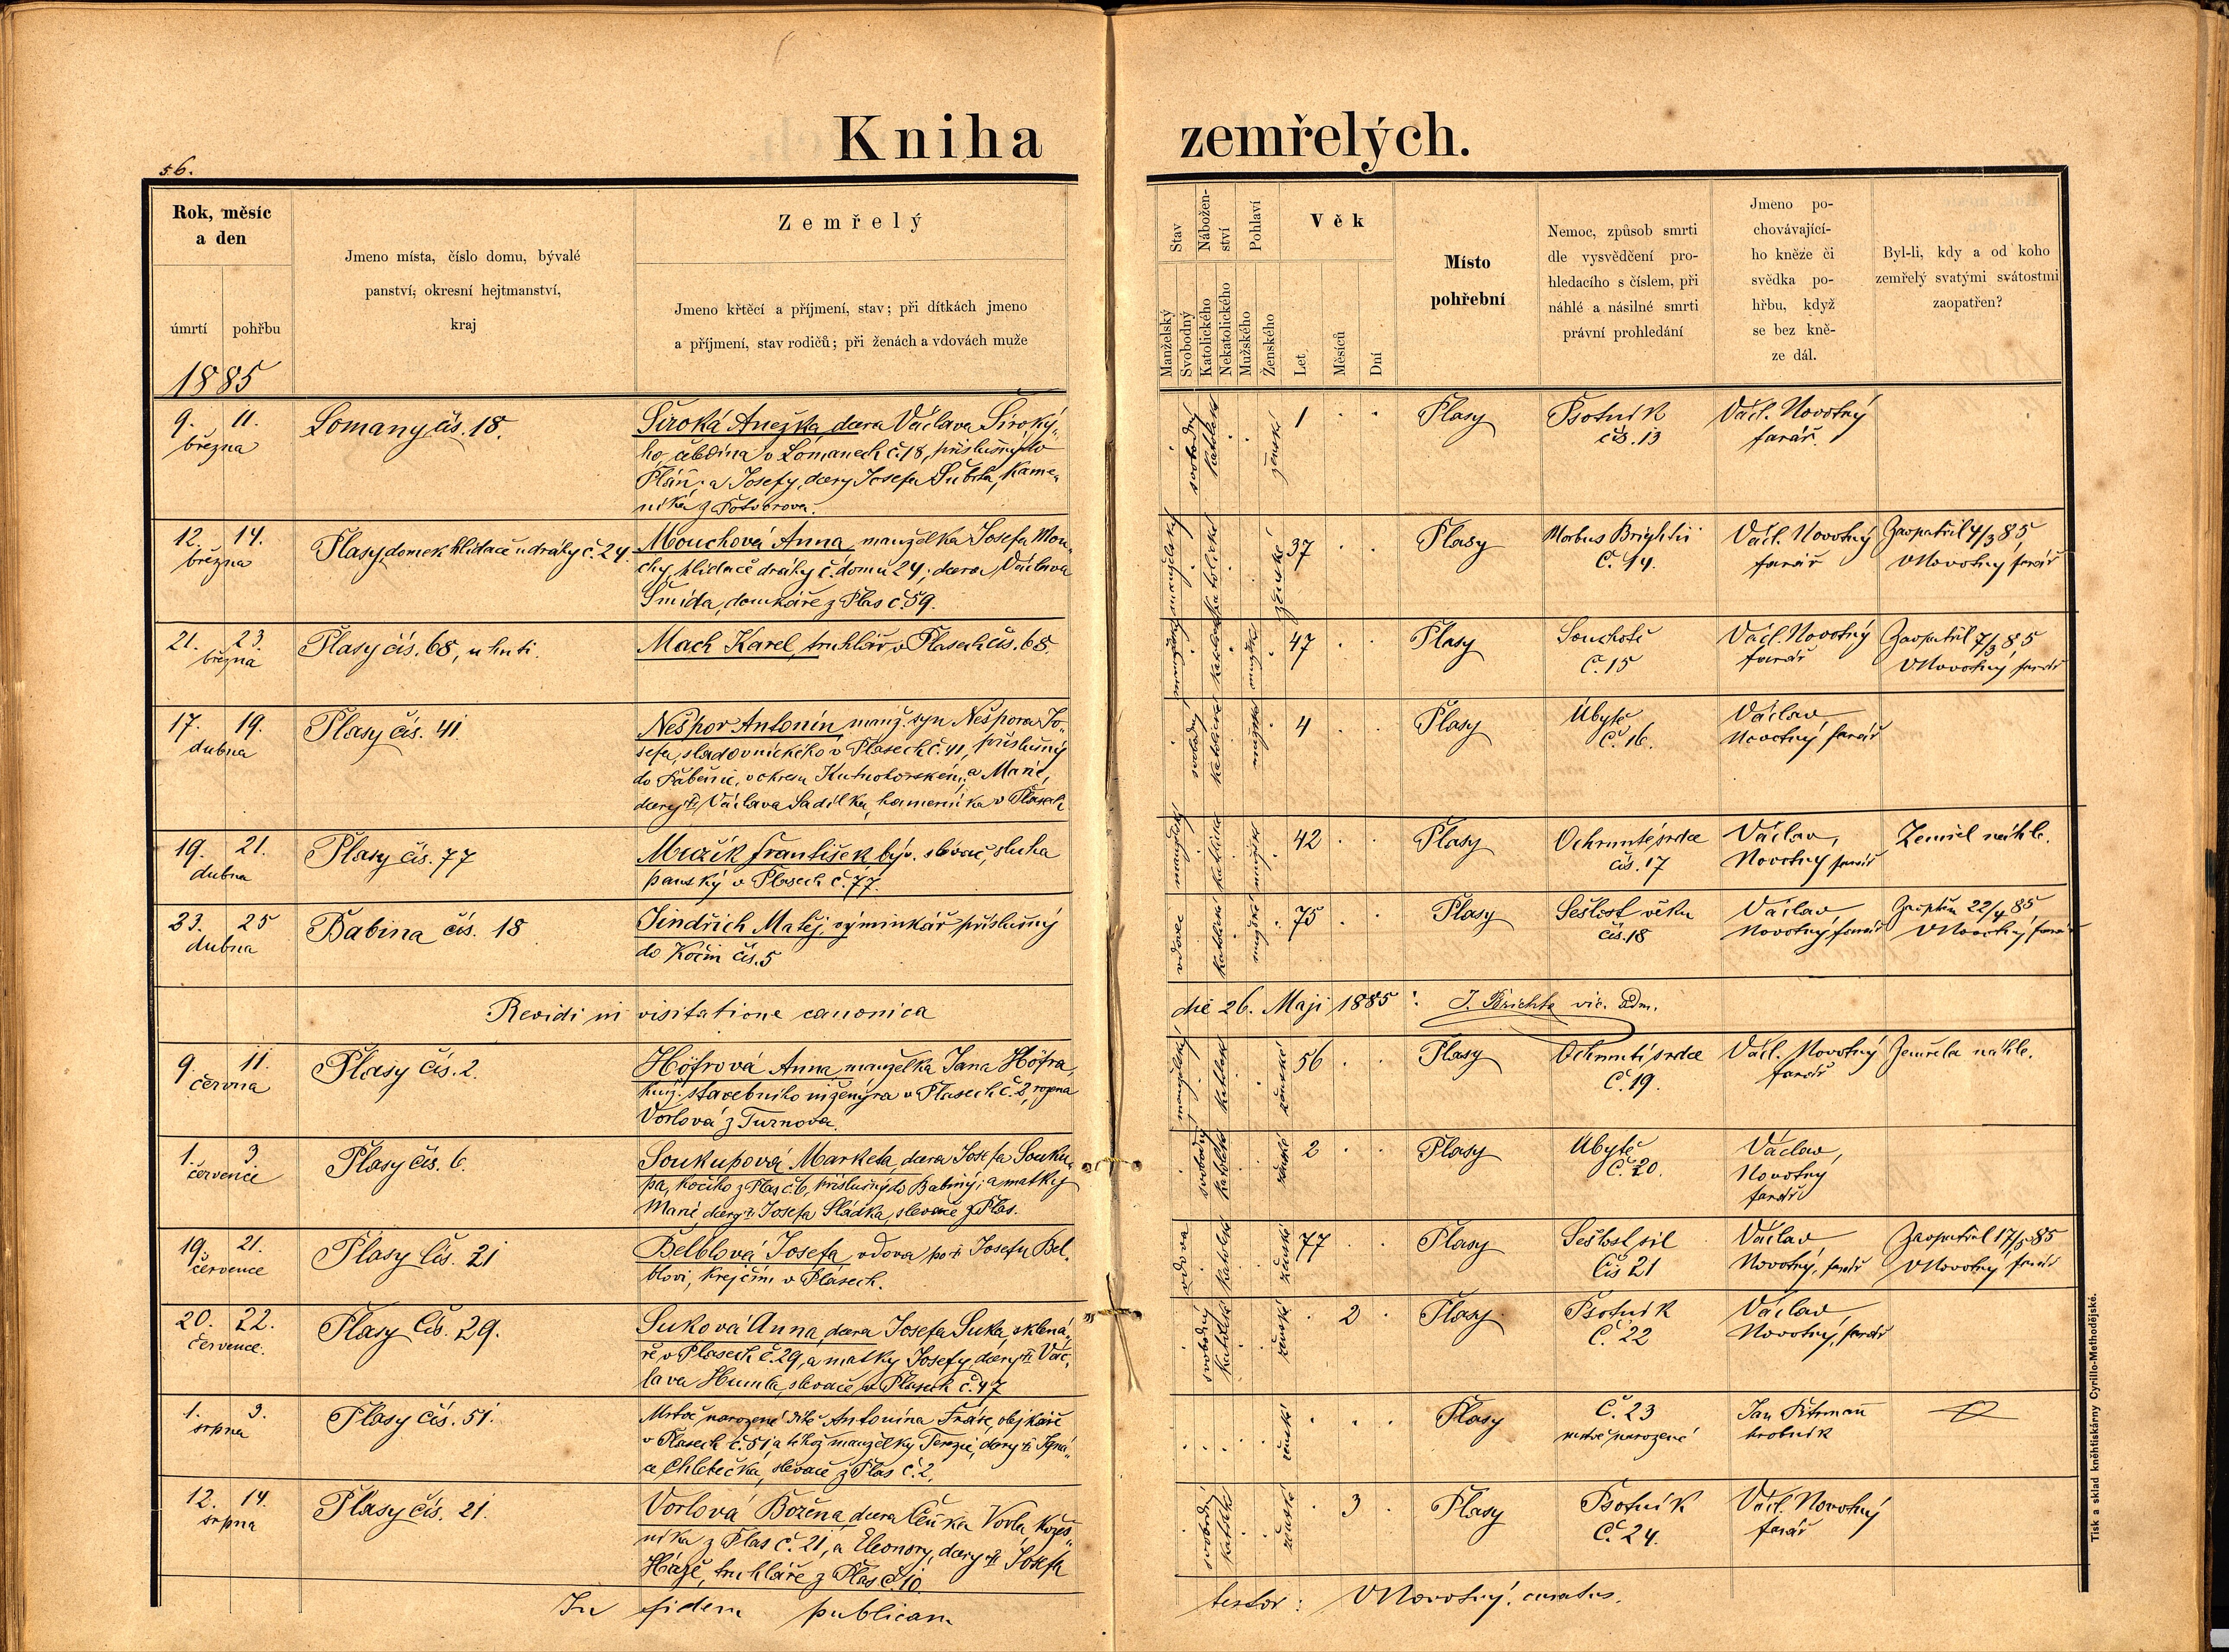 Kniha zemřelých.
56.
Rok, měsíc
a den
úmrtí pohřbu
1885
Jmeno místa, číslo domu, bývalé
panství, okresní hejtmanství,
kraj
Zemřelý
Jmeno křtěcí a příjmení, stav; při dítkách jmeno
a příjmení, stav rodičů; při ženách a vdovách muže
Stav
Manželský
Svobodný
Nábožen-
ství
Katolického
Nekatolického
Pohlaví
Mužského
Ženského
Věk
Let
Měsíců
Dní
Místo
pohřební
Nemoc, způsob smrti
dle vysvědčení pro-
hledacího s číslem, při
náhlé a násilné smrti
právní prohledání
Jmeno po-
chovávající-
ho kněze či
svědka po-
hřbu, když
se bez kně-
ze dál.
Byl-li, kdy a od koho
zemřelý svatými svátostmi
zaopatřen?
9. 11.
března
Lomany čís. 18.
Široká Anežka, dcera Václava Široký-
ho, čeledína v Lomanech č. 18, příslušný do
Pláň, a Josefy, dcery Josefa Šubrta, kame-
níka z Potvorova.
svobodný katolické ženské 1
Plasy
Psotník
čís. 13
Václ. Novotný
farář.
12. 14.
března
Plasy domek hlídače u dráhy č. 24.
Mouchová Anna, manželka Josefa Mou-
chy, hlídače dráhy č. domu 24, dcera Václava
Šmída, domkáře z Plas č. 59.
manželský katolické ženské 37
Plasy
Morbus Brightii
č. 14.
Václ. Novotný
farář
Zaopatřil 4/3 85
VNovotný farář
21. 23.
března
Plasy čís. 68, u huti.
Mach Karel, truhlář v Plasech čís. 68.
manželský katolické mužské 47
Plasy
Souchotě
č. 15
Václ. Novotný
farář
Zaopatřil 7/3 85
VNovotný farář
17. 19.
dubna
Plasy čís. 41
Nešpor Antonín manž. syn Nešpora Jo-
sefa, sladovnického v Plasech č. 41, příslušný
do Paběnic, v okresu Kutnohorském, a Marie,
dcery † Václava Sadílka, kameníka v Plasech
svobodný katolické mužské 4
Plasy
Úbytě
č. 16.
Václav
Novotný farář
19. 21.
dubna
Plasy čís. 77
Mrazík František býv. slévač, sluha
panský v Plasech č. 77.
manželský katolické mužské 42
Plasy
Ochrnutí srdce
čís. 17
Václav,
Novotný farář
Zemřel náhle.
23. 25
dubna
Babina čís. 18
Jindřich Matěj, výminkář příslušný
do Kočín čís. 5
vdovec katolické mužské 75
Plasy
Sešlost věku
čís. 18
Václav
Novotný farář
Zaopatřen 22/4 85
VNovotný farář
Revidi in visitatione canonica die 26. Maji 1885: J. Brichta vic. adm.
9. 11.
června
Plasy čís. 2.
Höfrová Anna, manželka Jana Höfra,
kníž. stavebního inženýra v Plasech č. 2, rozená
Vorlová z Turnova.
manželský katolické ženské 56
Plasy
Ochrnutí srdce
č. 19.
Václ. Novotný
farář
Zemřela náhle.
1. 3
července
Plasy čís. 6.
Soukupová Marketa, dcera Josefa Souku-
pa, kočího z Plas č. 6, příslušný do Babiny; a matky
Marie, dcery † Josefa Sládka, slevače z Plas.
svobodný katolické ženské 2
Plasy
Úbytě
č. 20.
Václav,
Novotný
farář
19. 21.
července
Plasy čís. 21
Belblová Josefa, vdova po † Josefu Bel-
blovi, krejčím v Plasech.
vdova katolické ženské 77
Plasy
Sešlost sil
čís 21
Václav
Novotný, farář
Zaopatřil 17/5 85
VNovotný farář
20. 22.
července.
Plasy čís. 29.
Suková Anna, dcera Josefa Suka, sklená-
ře v Plasech č. 29, a matky Josefy, dcery † Vác-
lava Humla, slevače v Plasech č. 47
svobodný katolické ženské 2
Plasy
Psotník
č. 22
Václav
Novotný, farář
1. 3.
srpna
Plasy čís. 51.
Mrtvě narozené dítě Antonína Fráse, obejkáře
v Plasech č. 51, a téhož manželky Terezie, dcery † Igná-
ce Chlebečka, slevače z Plas č. 2.
ženské
Plasy
č. 23
mrtvě narozené
Jan
hrobník
12. 14.
srpna
Plasy čís. 21.
Vorlová Božena, dcera Čeňka Vorla, kožeš-
níka z Plas č. 21, a Eleonory, dcery † Josefa
Házě, truhláře z Plas č. 10.
svobodný katolické ženské 3
Plasy
Psotník
č. 24.
Václ. Novotný
farář
In fidem publicam testor: VNovotný. curatus.
Tisk a sklad kněhtiskárny Cyrillo-Methodějské.